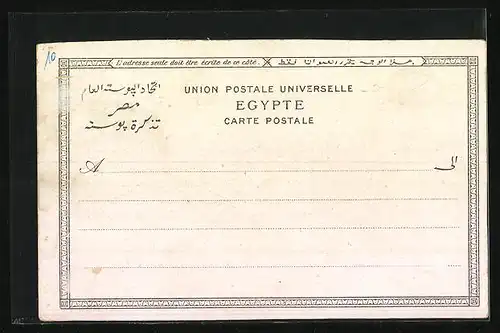 10
L'adresse seule doit être écrite de ce côté.
هذا الوجه محرر العنوان فقط
اتحاد البوسته العام
مصر
تذكرة بوسته
UNION POSTALE UNIVERSELLE
EGYPTE
CARTE POSTALE
A
الى